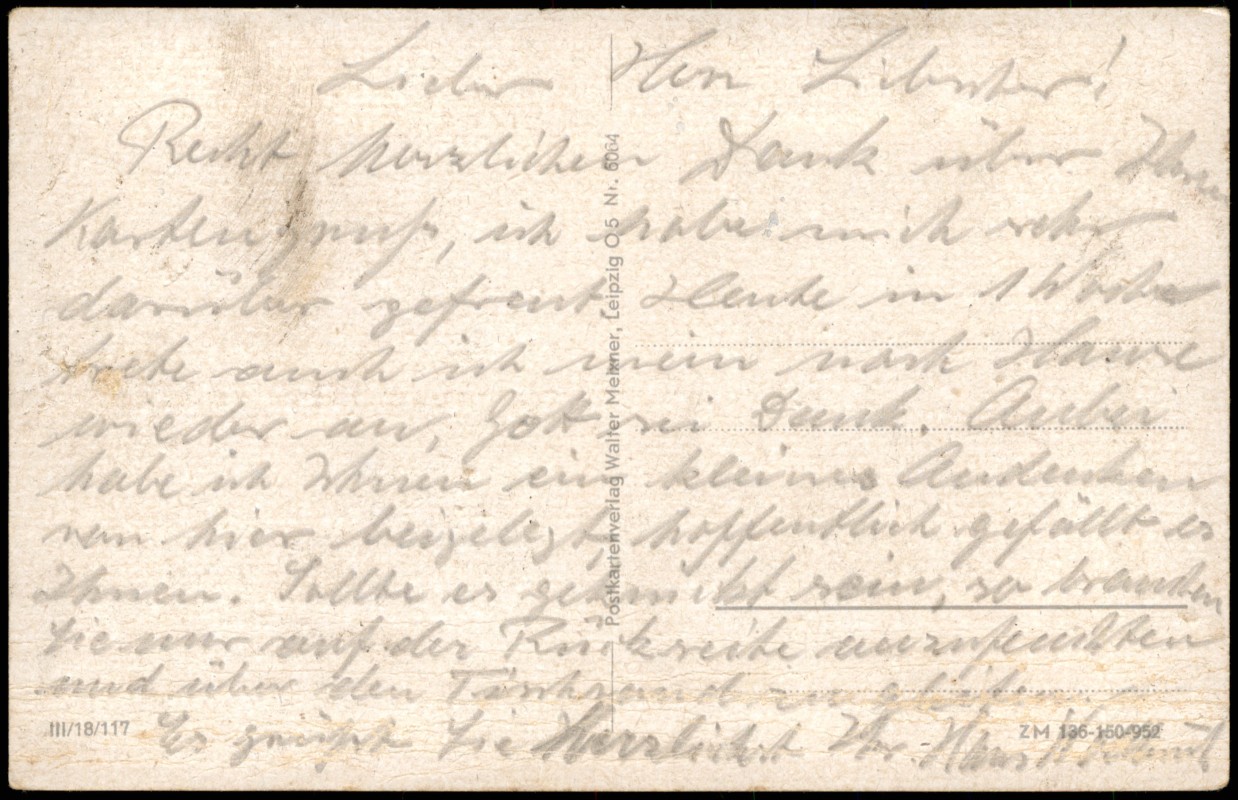 Lieber Herr Liebscher!
Recht herzlichen Dank über Ihren
Kartengruß, ich habe mich sehr
darüber gefreut. Heute in 1 Woche
trete auch ich mein nach Hause
wieder an, Gott sei Dank. Anbei
habe ich Ihnen ein kleines Andenken
von hier beigelegt, hoffentlich gefällt es
Ihnen. Sollte es geknickt sein, so brauchen
Sie nur auf der Rückseite anzufeuchten
und über den Tischrand zu gleiten.
Es grüßt Sie Herzlichst Ihr Hans
Postkartenverlag Walter Meixner, Leipzig O 5 Nr. 6064
III/18/117
ZM 136-150-952